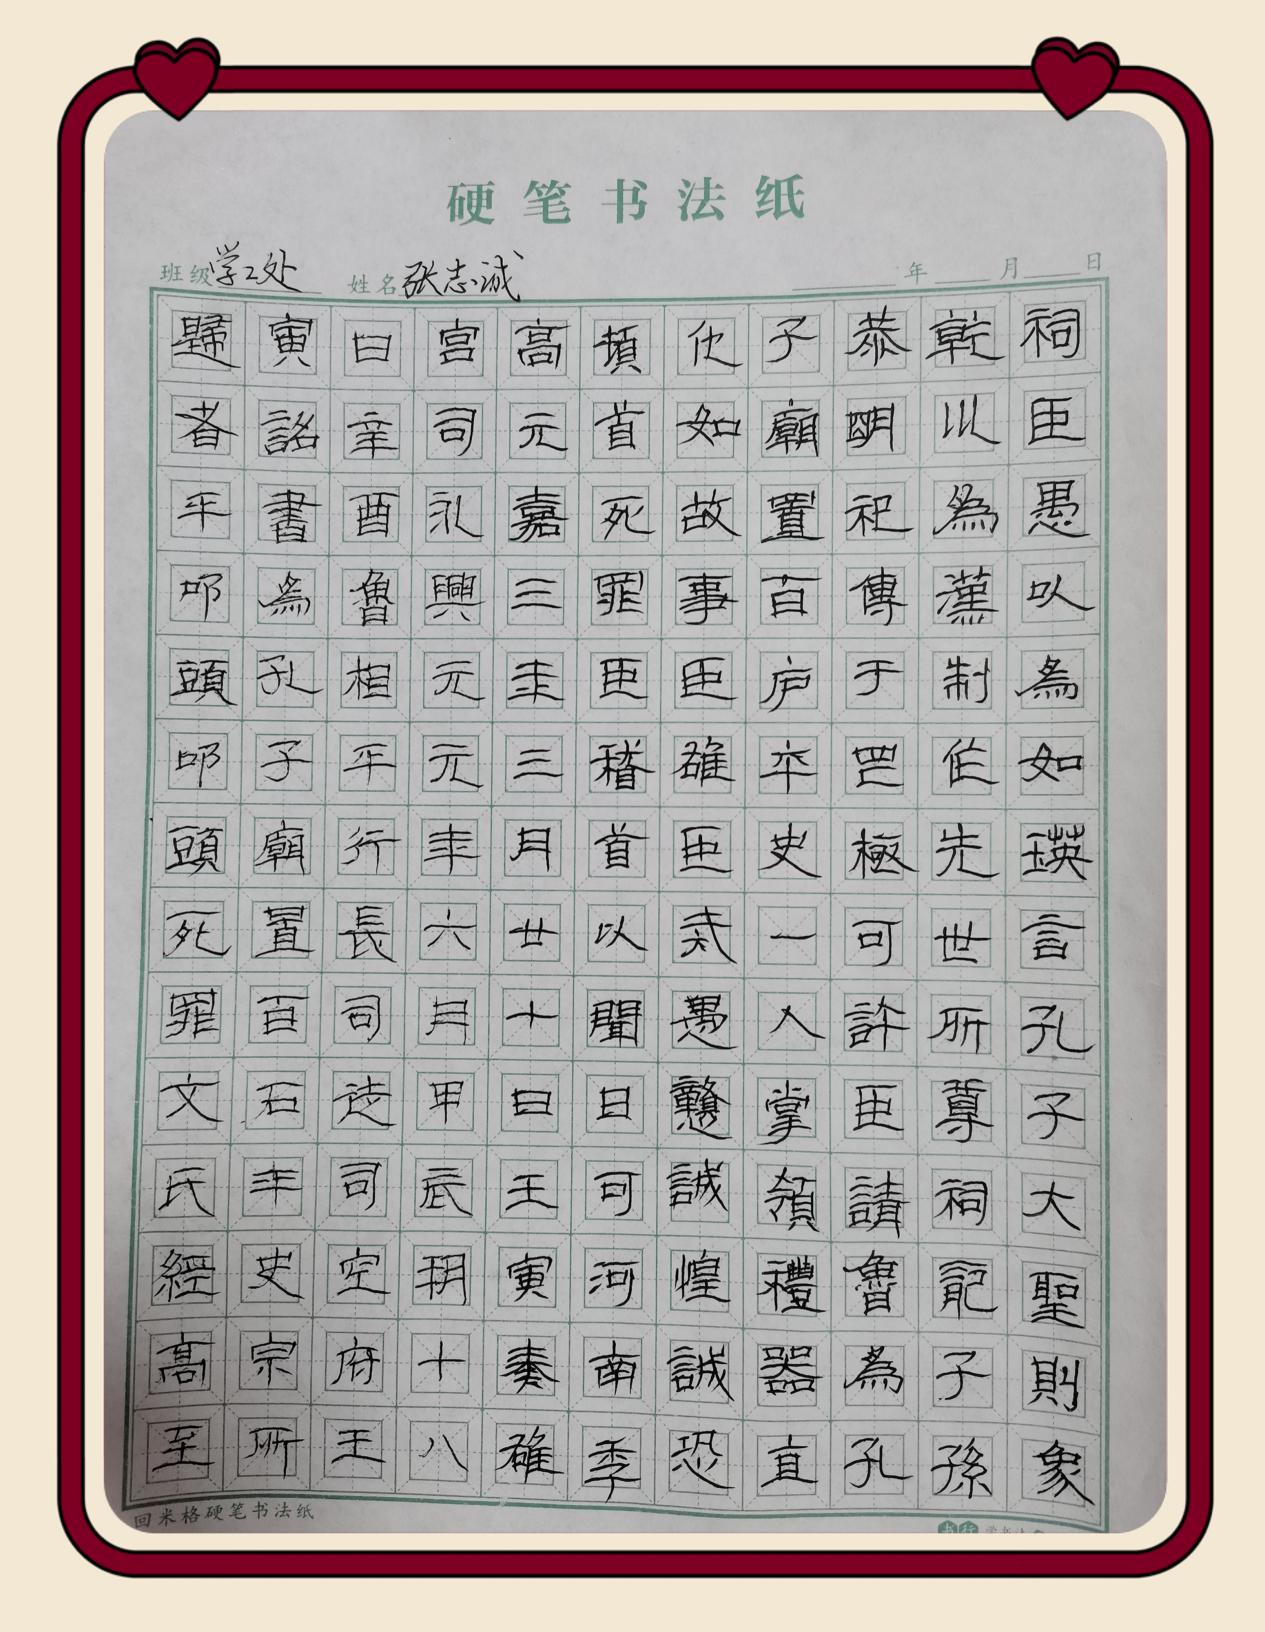 硬笔书法纸
班级学工处 姓名张志诚 年 月 日
祠臣愚以為如瑛言孔子大聖則象
乾川為漢制作先世所尊祠記子孫
恭明祀傳于罔極可許臣請魯為孔
子廟置百石卒史一人掌領禮器直
他如故事臣雄臣戒愚戇誠惶誠恐
頓首死罪臣稽首以聞日可河南季
高元嘉三年三月廿十日王寅奏雄
宮司永興元年六月甲辰朔十八
日辛酉魯相平行長司徒司空府王
寅詔書為孔子廟置百石年史宗所
歸者平叩頭叩頭死罪文氏經高至
回米格硬笔书法纸